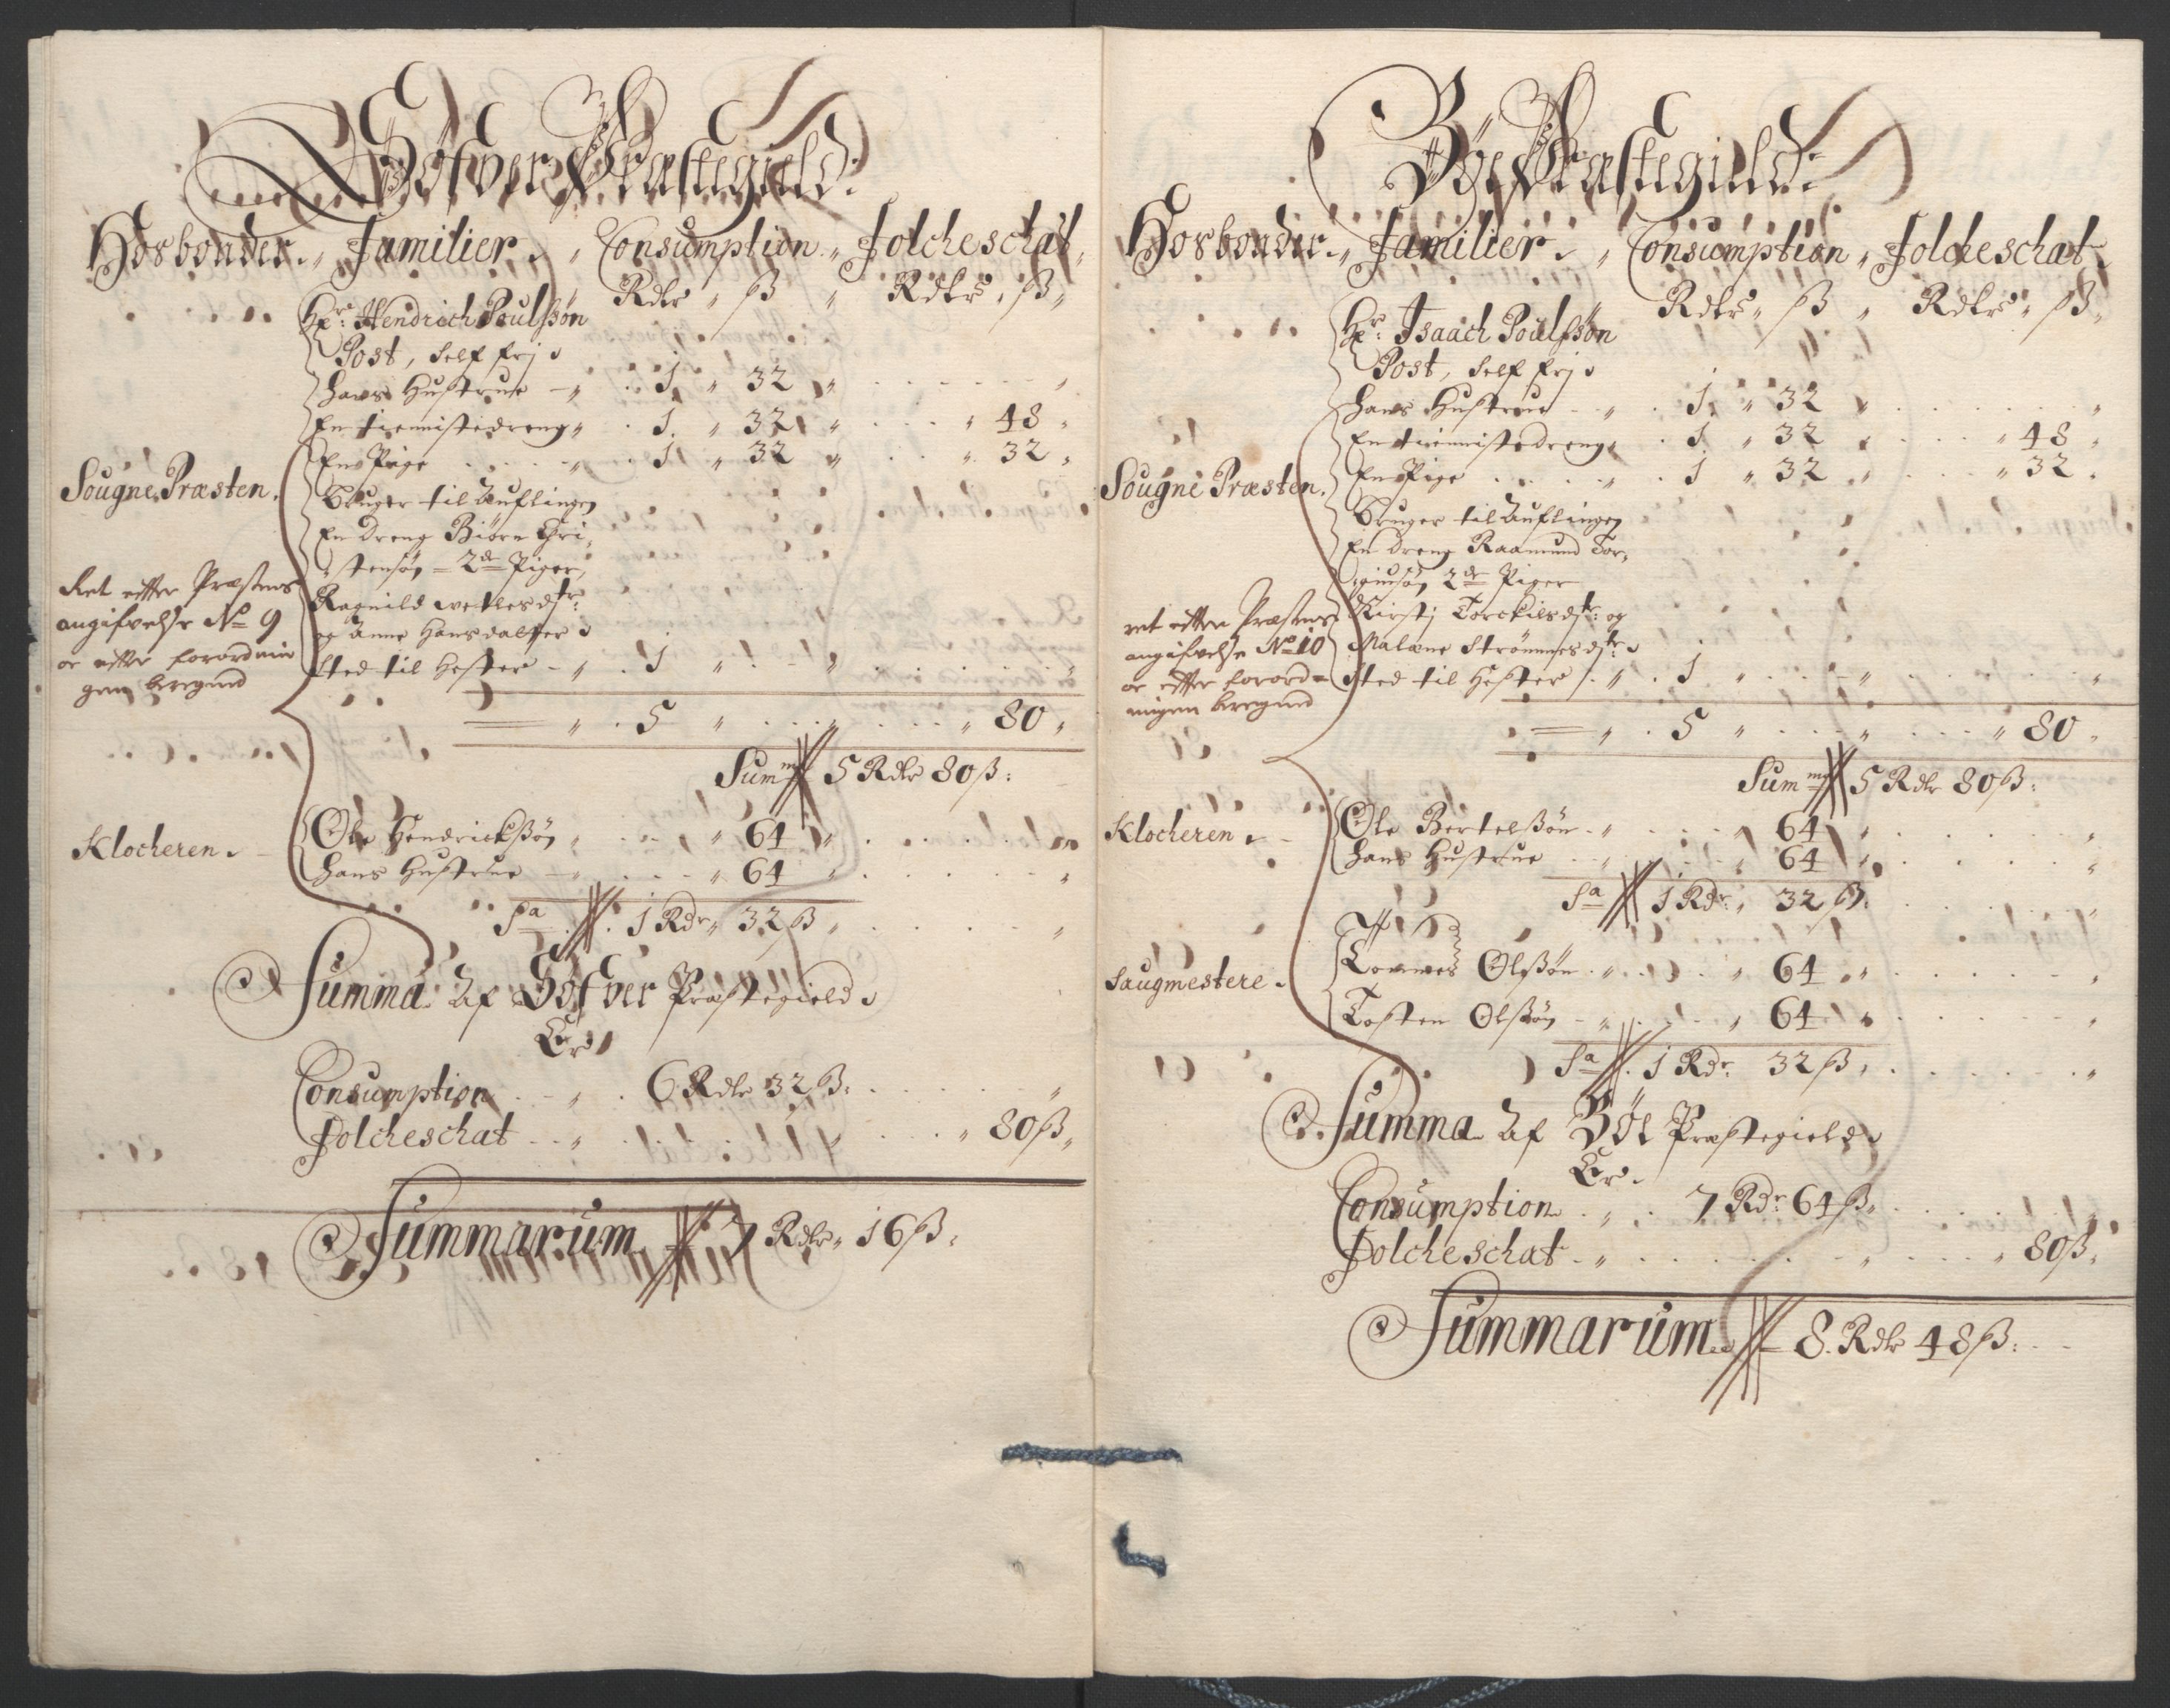 Böfver Præstegield.
Hosbonder. Familier. Consumption. Folcheschat.
Rdlr ß Rdlr ß
Hr: Hendrich Poulssøn
Post, self frj
hans Hustrue 1 32
En tiennistedreng 1 32 48
En Pige 1 32 32
Sougne Præsten.
Bruger til Auflingen
En dreng Biørn Chri-
stensøn - 2de Piger,
Ragnild
og Anne Hansdatter
sted til Hester 1
Ret efter Præstens
angifvelse No 9
er efter forordnin
gen beregned
5 80
Summa 5 Rdlr 80 ß:
Klocheren.
Ole Hendrichssøn 64
hans Hustrue 64
Sa 1 Rdr 32 ß
Summa Af Böfver Præstegield
Er
Consumption 6 Rdlr 32 ß:
Folcheschat 80 ß
Summarum 7 Rdlr 16 ß.
Böe Præstegield:
Hosbonder. Familier. Consumption Folcheschat
Rdlr ß Rdlr ß
Hr: Isaach Poulssøn
Post, self frj
hans Hustrue 1 32
En tiennistedreng 1 32 48
En Pige 1 32 32
Sougne Præsten.
Bruger til Auflingen
En dreng Raamund Tor-
giusøn 2de Piger
Kirstj Torckilsdtr: og
Malene Strömmesdtr
sted til Hester 1
ret efter Præstens
angifvelse No 10
er efter forord-
nigen beregned
5 80
Summa 5 Rdlr 80 ß:
Klocheren
Ole Bertelssøn 64
hans Hustrue 64
Sa 1 Rdr: 32 ß.
Saugmestere
Olssøn 64
Tosten Olssøn 64
Sa 1 Rdr: 32 ß
Summa Af Böe Præstegield
Er
Consumption 7 Rdr: 64 ß
Folcheschat 80 ß
Summarum 8 Rdlr 48 ß: